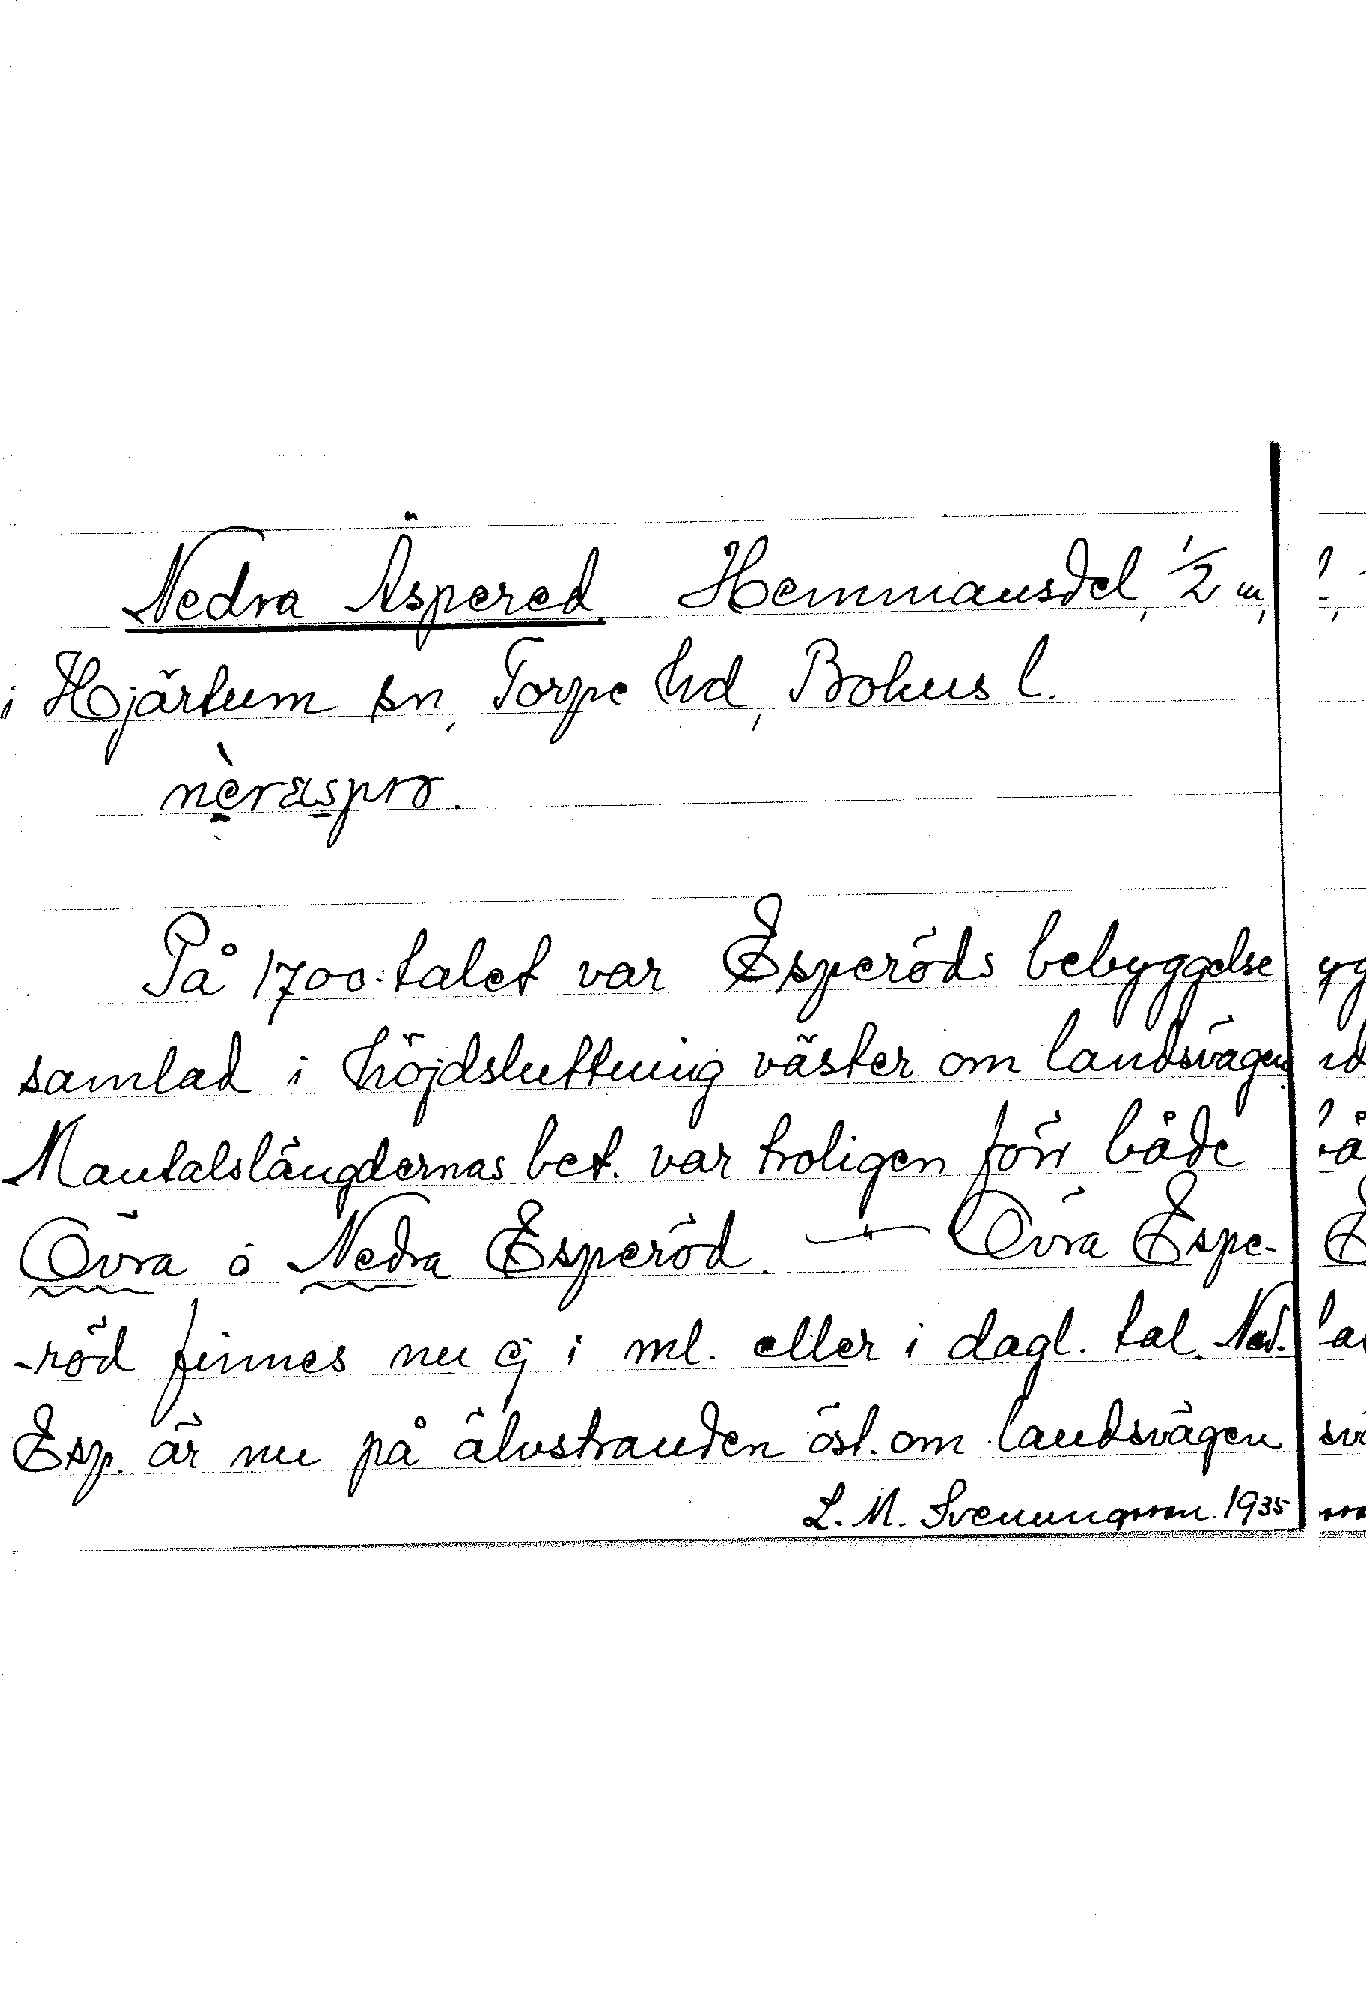 Nedra Äspered Hemmansdel, 1/2 m,
i Hjärtum sn, Torpe hd, Bohus l.
På 1700-talet var Esperöds bebyggelse
samlad i höjdsluttning väster om landsvägen.
Mantalslängdernas bet. var troligen förr både
Övra o Nedra Esperöd. — Övra Espe-
-röd finnes nu ej i ml. eller i dagl. tal. Ned.
Esp. är nu på älvstranden öst. om landsvägen
L. M. Svenungsson 1935